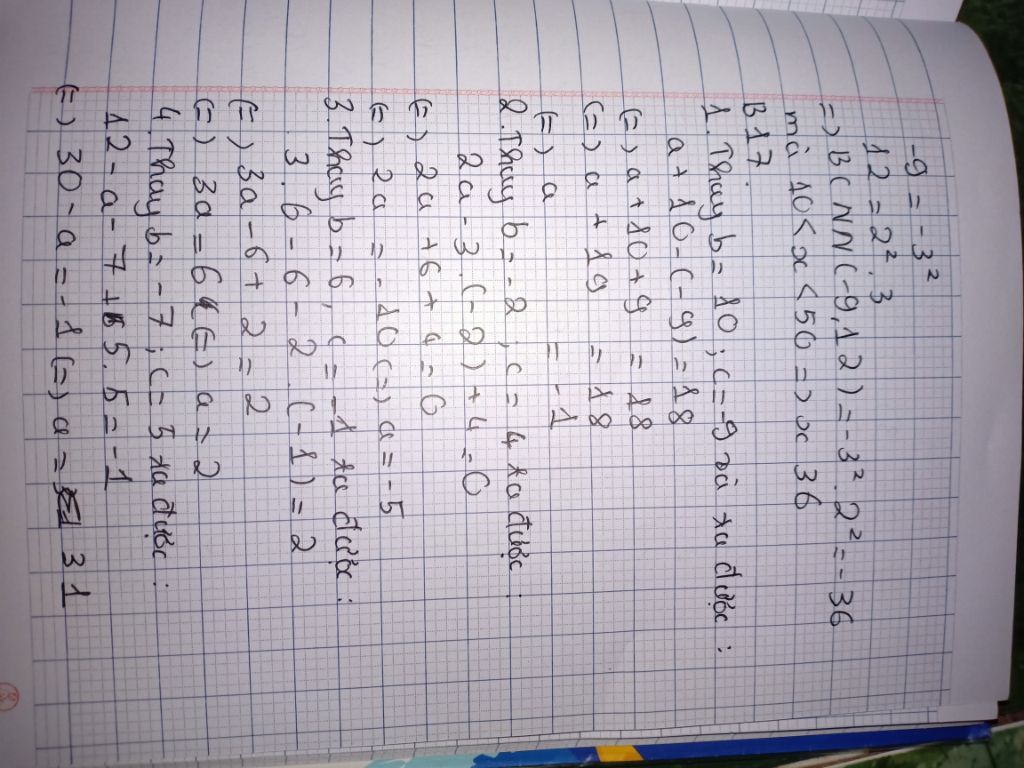 -9 = -3²
12 = 2².3
=) BCNN(-9,12) = -3².2² = -36
mà 10 < x < 50 =) x 36
B17:
1. Thay b = 10 ; c = -9 và ta được :
a + 10 - (-9) = 18
(=) a + 10 + 9 = 18
(=) a + 19 = 18
(=) a = -1
2. Thay b = -2 ; c = 4 ta được :
2a - 3.(-2) + 4 = 0
(=) 2a + 6 + 4 = 0
(=) 2a = -10 (=) a = -5
3. Thay b = 6, c = -1 ta được :
3.6 - 6 - 2.(-1) = 2
(=) 3a - 6 + 2 = 2
(=) 3a = 6 (=) a = 2
4. Thay b = -7 ; c = 5 ta được :
12 - a - 7 + 5.5 = -1
(=) 30 - a = -1 (=) a = 31